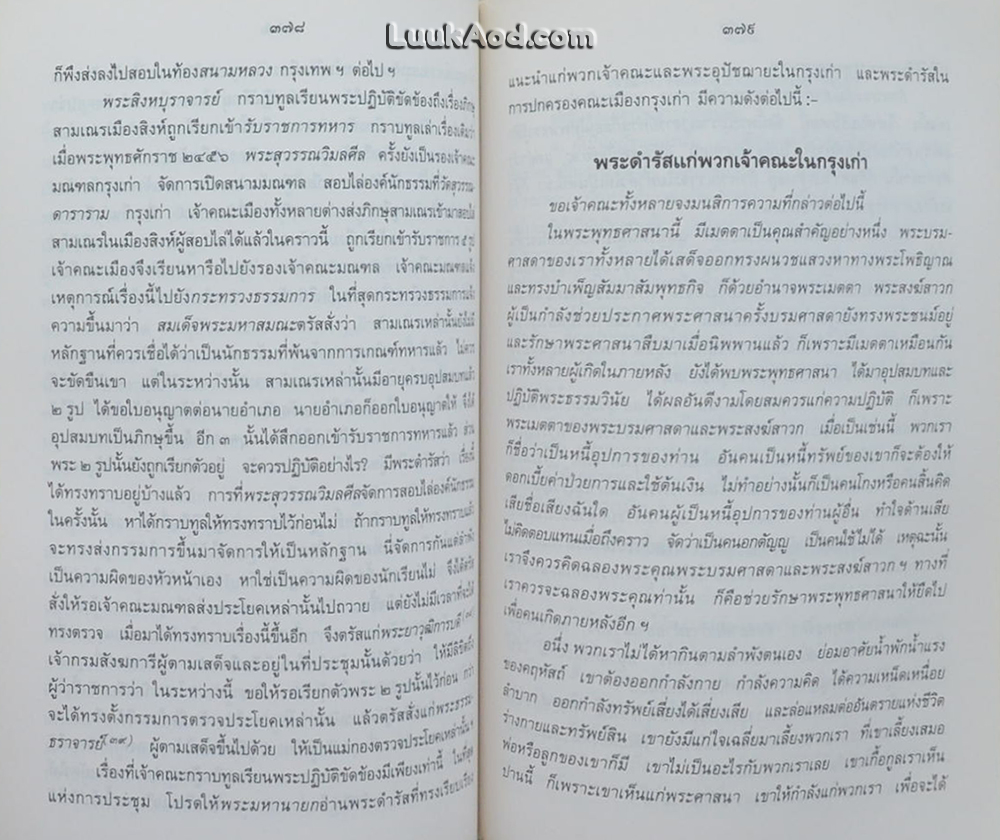 ๓๗๘
LuukAod.com
ก็พึงส่งลงไปสอบในท้องสนามหลวง กรุงเทพ ฯ ต่อไป ฯ
พระสิงหบุราจารย์ กราบทูลเรียนพระปฏิบัติขัดข้องถึงเรื่องภิกษุ
สามเณรเมืองสิงห์ถูกเรียกเข้ารับราชการทหาร กราบทูลเล่าเรื่องเดิมว่า
เมื่อพระพุทธศักราช ๒๔๕๖ พระสุวรรณวิมลศีล ครั้งยังเป็นรองเจ้าคณะ
มณฑลกรุงเก่า จัดการเปิดสนามมณฑล สอบไล่องค์นักธรรมที่วัดสุวรรณ
ดาราราม กรุงเก่า เจ้าคณะเมืองทั้งหลายต่างส่งภิกษุสามเณรเข้ามาสอบไล่
สามเณรในเมืองสิงห์ผู้สอบไล่ได้แล้วในคราวนี้ ถูกเรียกเข้ารับราชการ ๕ รูป
เจ้าคณะเมืองจึงเรียนหารือไปยังรองเจ้าคณะมณฑล เจ้าคณะมณฑลแจ้ง
เหตุการณ์เรื่องนี้ไปยังกระทรวงธรรมการ ในที่สุดกระทรวงธรรมการแจ้ง
ความขึ้นมาว่า สมเด็จพระมหาสมณะตรัสสั่งว่า สามเณรเหล่านั้นยังไม่มี
หลักฐานที่ควรเชื่อได้ว่าเป็นนักธรรมที่พ้นจากการเกณฑ์ทหารแล้ว ไม่ควร
จะขัดขืนเขา แต่ในระหว่างนั้น สามเณรเหล่านั้นมีอายุครบอุปสมบทแล้ว
๒ รูป ได้ขอใบอนุญาตต่อนายอำเภอ นายอำเภอก็ออกใบอนุญาตให้ จึงได้
อุปสมบทเป็นภิกษุขึ้น อีก ๓ นั้นได้สึกออกเข้ารับราชการทหารแล้ว ส่วน
พระ ๒ รูปนั้นยังถูกเรียกตัวอยู่ จะควรปฏิบัติอย่างไร? มีพระดำรัสว่า เรื่องนี้
ได้ทรงทราบอยู่บ้างแล้ว การที่พระสุวรรณวิมลศีลจัดการสอบไล่องค์นักธรรม
ในครั้งนั้น หาได้กราบทูลให้ทรงทราบไว้ก่อนไม่ ถ้ากราบทูลให้ทรงทราบแล้ว
จะทรงส่งกรรมการขึ้นมาจัดการให้เป็นหลักฐาน นี่จัดการกันแต่ลำพัง
เป็นความผิดของหัวหน้าเอง หาใช่เป็นความผิดของนักเรียนไม่ จึงได้ตรัส
สั่งให้รอเจ้าคณะมณฑลส่งประโยคเหล่านั้นไปถวาย แต่ยังไม่มีเวลาที่จะได้
ทรงตรวจ เมื่อมาได้ทรงทราบเรื่องนี้ขึ้นอีก จึงตรัสแก่พระยาวุฒิการบดี
เจ้ากรมสังฆการีผู้ตามเสด็จและอยู่ในที่ประชุมนั้นด้วยว่า ให้มีลิขิตถึง
ผู้ว่าราชการว่า ในระหว่างนี้ ขอให้รอเรียกตัวพระ ๒ รูปนั้นไว้ก่อน กว่า
จะได้ทรงตั้งกรรมการตรวจประโยคเหล่านั้น แล้วตรัสสั่งแก่พระธรรม-
ธราจารย์(๓๙) ผู้ตามเสด็จขึ้นไปด้วย ให้เป็นแม่กองตรวจประโยคเหล่านั้น ฯ
เรื่องที่เจ้าคณะกราบทูลเรียนพระปฏิบัติขัดข้องมีเพียงเท่านี้ ในที่สุด
แห่งการประชุม โปรดให้พระมหานายกอ่านพระดำรัสที่ทรงเรียบเรียง
๓๗๙
แนะนำแก่พวกเจ้าคณะและพระอุปัชฌายะในกรุงเก่า และพระดำรัสใน
การปกครองคณะเมืองกรุงเก่า มีความดังต่อไปนี้ :-
พระดำรัสแก่พวกเจ้าคณะในกรุงเก่า
ขอเจ้าคณะทั้งหลายจงมนสิการความที่กล่าวต่อไปนี้
ในพระพุทธศาสนานี้ มีเมตตาเป็นคุณสำคัญอย่างหนึ่ง พระบรม-
ศาสดาของเราทั้งหลายได้เสด็จออกทรงผนวชแสวงหาทางพระโพธิญาณ
และทรงบำเพ็ญสัมมาสัมพุทธกิจ ก็ด้วยอำนาจพระเมตตา พระสงฆ์สาวก
ผู้เป็นกำลังช่วยประกาศพระศาสนาครั้งบรมศาสดายังทรงพระชนม์อยู่
และรักษาพระศาสนาสืบมาเมื่อนิพพานแล้ว ก็เพราะมีเมตตาเหมือนกัน
เราทั้งหลายผู้เกิดในภายหลัง ยังได้พบพระพุทธศาสนา ได้มาอุปสมบทและ
ปฏิบัติพระธรรมวินัย ได้ผลอันดีงามโดยสมควรแก่ความปฏิบัติ ก็เพราะ
พระเมตตาของพระบรมศาสดาและพระสงฆ์สาวก เมื่อเป็นเช่นนี้ พวกเรา
ก็ชื่อว่าเป็นหนี้อุปการของท่าน อันคนเป็นหนี้ทรัพย์ของเขาก็จะต้องให้
ดอกเบี้ยค่าป่วยการและใช้ต้นเงิน ไม่ทำอย่างนั้นก็เป็นคนโกงหรือคนสิ้นคิด
เสียชื่อเสียงฉันใด อันคนผู้เป็นหนี้อุปการของท่านผู้อื่น ทำใจด้านเสีย
ไม่คิดตอบแทนเมื่อถึงคราว จัดว่าเป็นคนอกตัญญู เป็นคนใช้ไม่ได้ เหตุฉะนั้น
เราจึงควรคิดฉลองพระคุณพระบรมศาสดาและพระสงฆ์สาวก ฯ ทางที่
เราควรจะฉลองพระคุณท่านนั้น ก็คือช่วยรักษาพระพุทธศาสนาให้ยืดไป
เพื่อคนเกิดภายหลังอีก ฯ
อนึ่ง พวกเราไม่ได้หากินตามลำพังตนเอง ย่อมอาศัยน้ำพักน้ำแรง
ของคฤหัสถ์ เขาต้องออกกำลังกาย กำลังความคิด ได้ความเหน็ดเหนื่อย
ลำบาก ออกกำลังทรัพย์เสี่ยงได้เสี่ยงเสีย และล่อแหลมต่ออันตรายแห่งชีวิต
ร่างกายและทรัพย์สิน เขายังมีแก่ใจเฉลี่ยมาเลี้ยงพวกเรา ที่เขาเลี้ยงเสมอ
พ่อหรือลูกของเขาก็มี เขาไม่เป็นอะไรกับพวกเราเลย เขาเกื้อกูลเราเห็น
ปานนี้ ก็เพราะเขาเห็นแก่พระศาสนา เขาให้กำลังแก่พวกเรา เพื่อจะได้